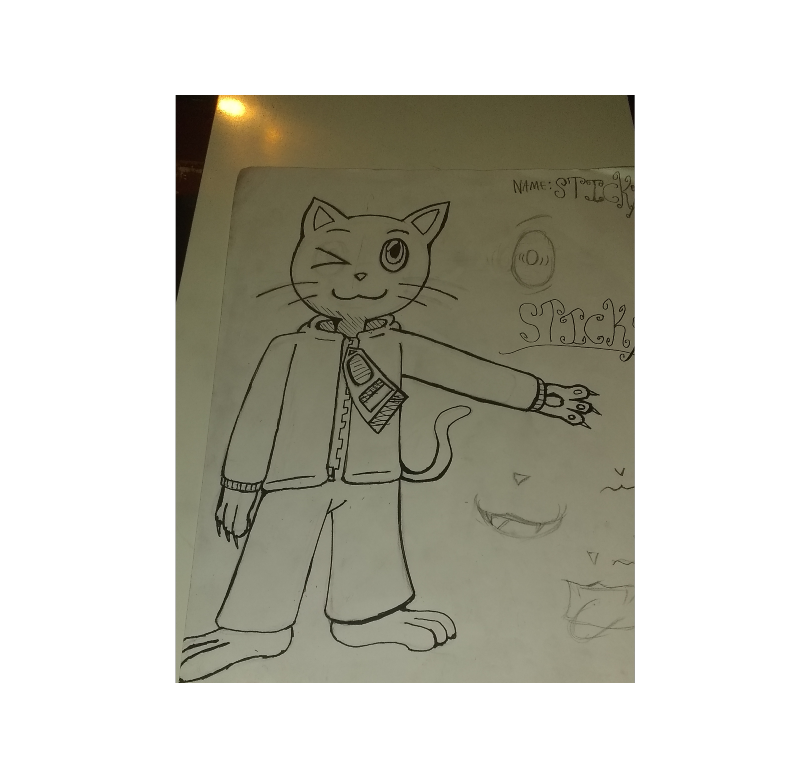 NAME: STICK
STICK